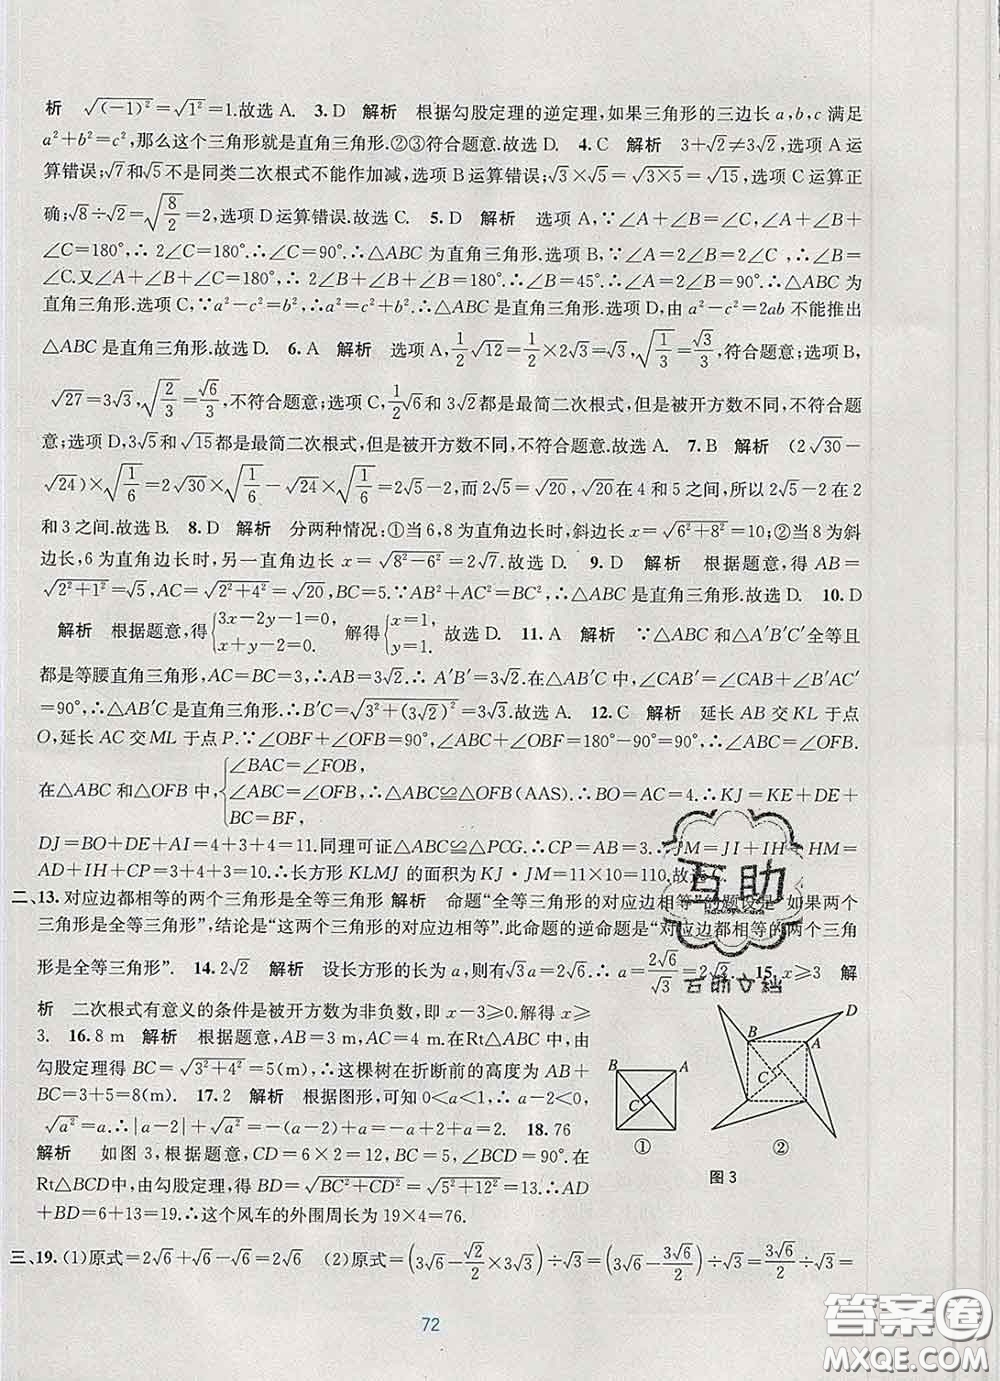 析 √(-1)²=√1²=1.故选A. 3.D 解析 根据勾股定理的逆定理,如果三角形的三边长a,b,c满足
a²+b²=c²,那么这个三角形就是直角三角形.②③符合题意.故选D. 4.C 解析 3+√2≠3√2,选项A运
算错误;√7和√5不是同类二次根式不能作加减,选项B运算错误;√3×√5=√(3×5)=√15,选项C运算正
确;√8÷√2=√(8/2)=2,选项D运算错误.故选C. 5.D 解析 选项A,∵∠A+∠B=∠C,∠A+∠B+
∠C=180°,∴2∠C=180°.∴∠C=90°.∴△ABC为直角三角形.选项B,∵∠A=2∠B=2∠C,∴∠B=
∠C.又∠A+∠B+∠C=180°,∴2∠B+∠B+∠B=180°.∴∠B=45°.∴∠A=2∠B=90°.∴△ABC为
直角三角形.选项C,∵a²-c²=b²,∴a²=c²+b².∴△ABC是直角三角形.选项D,由a²-c²=2ab不能推出
△ABC是直角三角形.故选D. 6.A 解析 选项A,1/2√12=1/2×2√3=√3,√(1/3)=√3/3,符合题意;选项B,
√27=3√3,√(2/3)=√6/3,不符合题意;选项C,1/2√6和3√2都是最简二次根式,但是被开方数不同,不符合题
意;选项D,3√5和√15都是最简二次根式,但是被开方数不同,不符合题意.故选A. 7.B 解析 (2√30-
√24)×√(1/6)=2√30×√(1/6)-√24×√(1/6)=2√5-2,而2√5=√20,√20在4和5之间,所以2√5-2在2
和3之间.故选B. 8.D 解析 分两种情况:①当6,8为直角边长时,斜边长x=√(6²+8²)=10;②当8为斜
边长,6为直角边长时,另一直角边长x=√(8²-6²)=2√7.故选D. 9.D 解析 根据题意,得AB=
√(2²+1²)=√5,AC=√(2²+4²)=√20,BC=5.∵AB²+AC²=BC²,∴△ABC是直角三角形.故选D. 10.D
解析 根据题意,得{3x-2y-1=0, x+y-2=0. 解得{x=1, y=1. 故选D. 11.A 解析 ∵△ABC和△A'B'C'全等且
都是等腰直角三角形,AC=BC=3,∴AB=3√2.∴A'B'=3√2.在△AB'C中,∠CAB'=∠CAB+∠B'AC'
=90°,∴△AB'C是直角三角形.∴B'C=√(3²+(3√2)²)=3√3.故选A. 12.C 解析 延长AB交KL于点
O,延长AC交ML于点P.∵∠OBF+∠OFB=90°,∠OBF+∠ABC=180°-90°=90°,∴∠ABC=∠OFB.
在△ABC和△OFB中,{∠BAC=∠FOB, ∠ABC=∠OFB, BC=BF, ∴△ABC≌△OFB(AAS).∴BO=AC=4.∴KJ=KE+DE+
DJ=BO+DE+AI=4+3+4=11.同理可证△ABC≌△PCG.∴CP=AB=3.∴JM=JI+IH+HM=
AD+IH+CP=3+4+3=10.∴长方形KLMJ的面积为KJ·JM=11×10=110.故选
二、13.对应边都相等的两个三角形是全等三角形 解析 命题“全等三角形的对应边都相等”的题设是“如果两个
三角形是全等三角形”,结论是“这两个三角形的对应边相等”.此命题的逆命题是“对应边都相等的两个三角
形是全等三角形”. 14.2√2 解析 设长方形的长为a,则有√3a=2√6.∴a=2√6/√3=2√2. 15.x≥3 解
析 二次根式有意义的条件是被开方数为非负数,即x-3≥0.解得x≥
3. 16.8m 解析 根据题意,AB=3m,AC=4m.在Rt△ABC中,由
勾股定理得BC=√(3²+4²)=5(m),∴这棵树在折断前的高度为AB+
BC=3+5=8(m). 17.2 解析 根据图形,可知0<a<1,∴a-2<0,
√a²=a.∴|a-2|+√a²=-(a-2)+a=-a+2+a=2. 18.76
解析 如图3,根据题意,CD=6×2=12,BC=5,∠BCD=90°.在
Rt△BCD中,由勾股定理,得BD=√(BC²+CD²)=√(5²+12²)=13.∴AD
+BD=6+13=19.∴这个风车的外围周长为19×4=76.
B
A
C
①
B
A
C
D
②
图3
三、19.(1)原式=2√6+√6-√6=2√6 (2)原式=(3√6-√2/2×3√3)÷√3=(3√6-3√6/2)÷√3=3√6/2÷√3=
72
互助
互助文档
答案圈
MXQE.COM